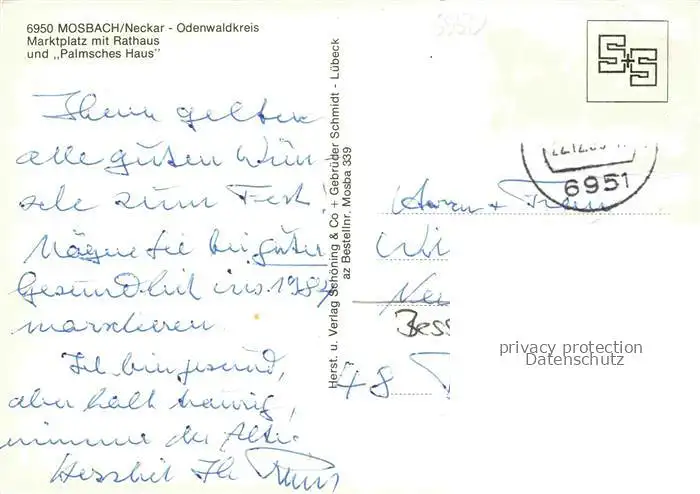 6950 MOSBACH/Neckar - Odenwaldkreis
Marktplatz mit Rathaus
und „Palmsches Haus"
Ihnen gelten
alle guten Wün-
sche zum Fest.
Mögen Sie bei guter
Gesundheit ins 1984
marschieren
Ich bin gesund,
aber halt traurig,
nimmer der Alte.
Herzlich Ihr
Herst. u. Verlag Schöning & Co + Gebrüder Schmidt - Lübeck
az Bestellnr. Mosba 339
S+S
22.12.83
6951
Herrn + Frau
Bess
48
privacy protection
Datenschutz